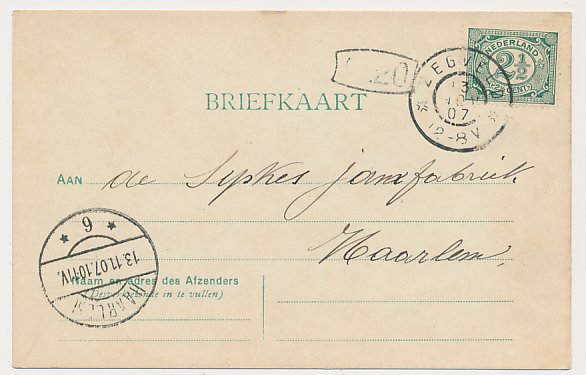 NEDERLAND
2½
CENT
ZEGVELD
13
07
12-8V
BRIEFKAART
AAN de Sypkes jamfabriek
Haarlem,
6
13.11.07.10-11V.
HAARLEM
Naam en adres des Afzenders
(Desverlangende in te vullen)